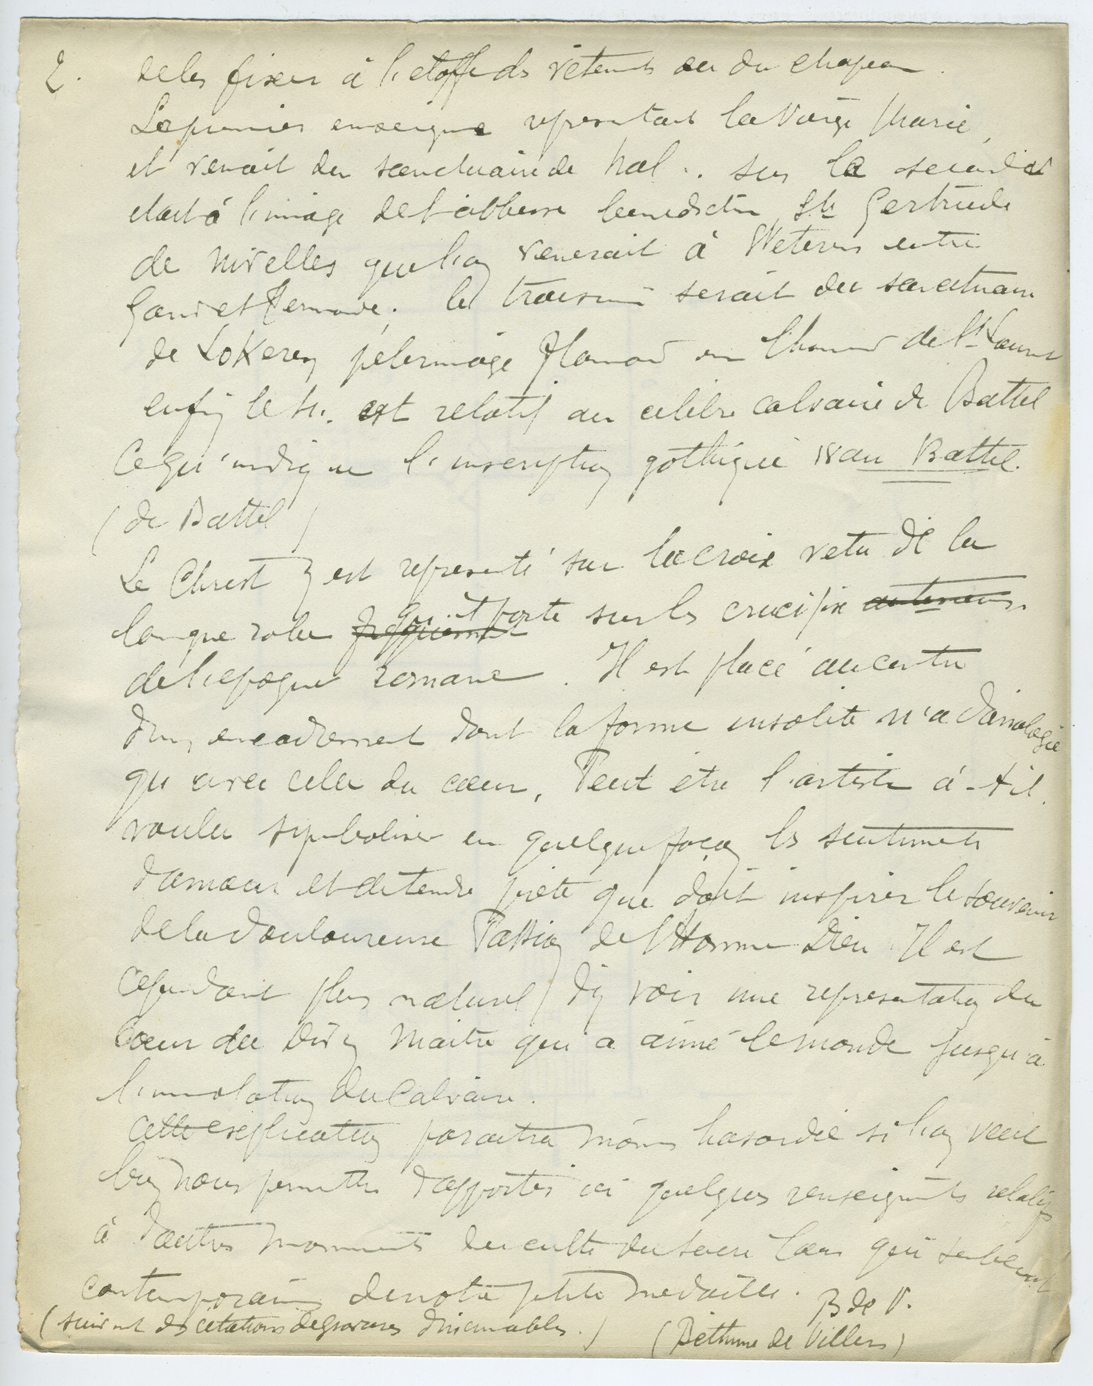 2. de les fixer à l'etoffe ds vêtements ou du chapeau.
La premier enseigne representait la Vierge Marie,
et venait du sanctuaire de Hal .. sur la seconde
etait à l'image de l'abbesse benedictin, Ste Gertrude
de Nivelles que l'on venerait à Weteren entre
Gand et Termonde. la troisième serait du sanctuaire
de Lokeren pèlerinage Flamand en l'honneur de St Laurent
enfin le 4e. est relatif au celèbre calvaire de Battel
Ce qu'indique l'inscription gothique van Battel.
(de Battel)
Le Christ y est representé sur la croix vetu de la
longue robe qu'il porte sur les crucifix anterieurs
de l'epoque romane. Il est placé au centre
d'un encadrement dont la forme insolite n'a d'analogie
qu'avec celle du cœur. Peut être l'artiste a-t-il
voulu symboliser en quelque façon ls sentiments
d'amour et de tendre piété que doit inspirer le souvenir
de la douloureuse Passion de l'Homme Dieu. Il est
cependant plus naturel d'y voir une representation du
Cœur du Divin Maitre qui a aimé le monde jusqu'à
l'immolation du Calvaire.
Cette explication paraitra moins hasardée si l'on veut
bien nous permettre d'apporter ici quelques renseignements relatifs
à d'autres monuments du culte du Sacré Cœur qui semblent
contemporains de notre petite medaille. B de V.
(suivent des citations de gravures d'incunables.) (Béthune de Villers)